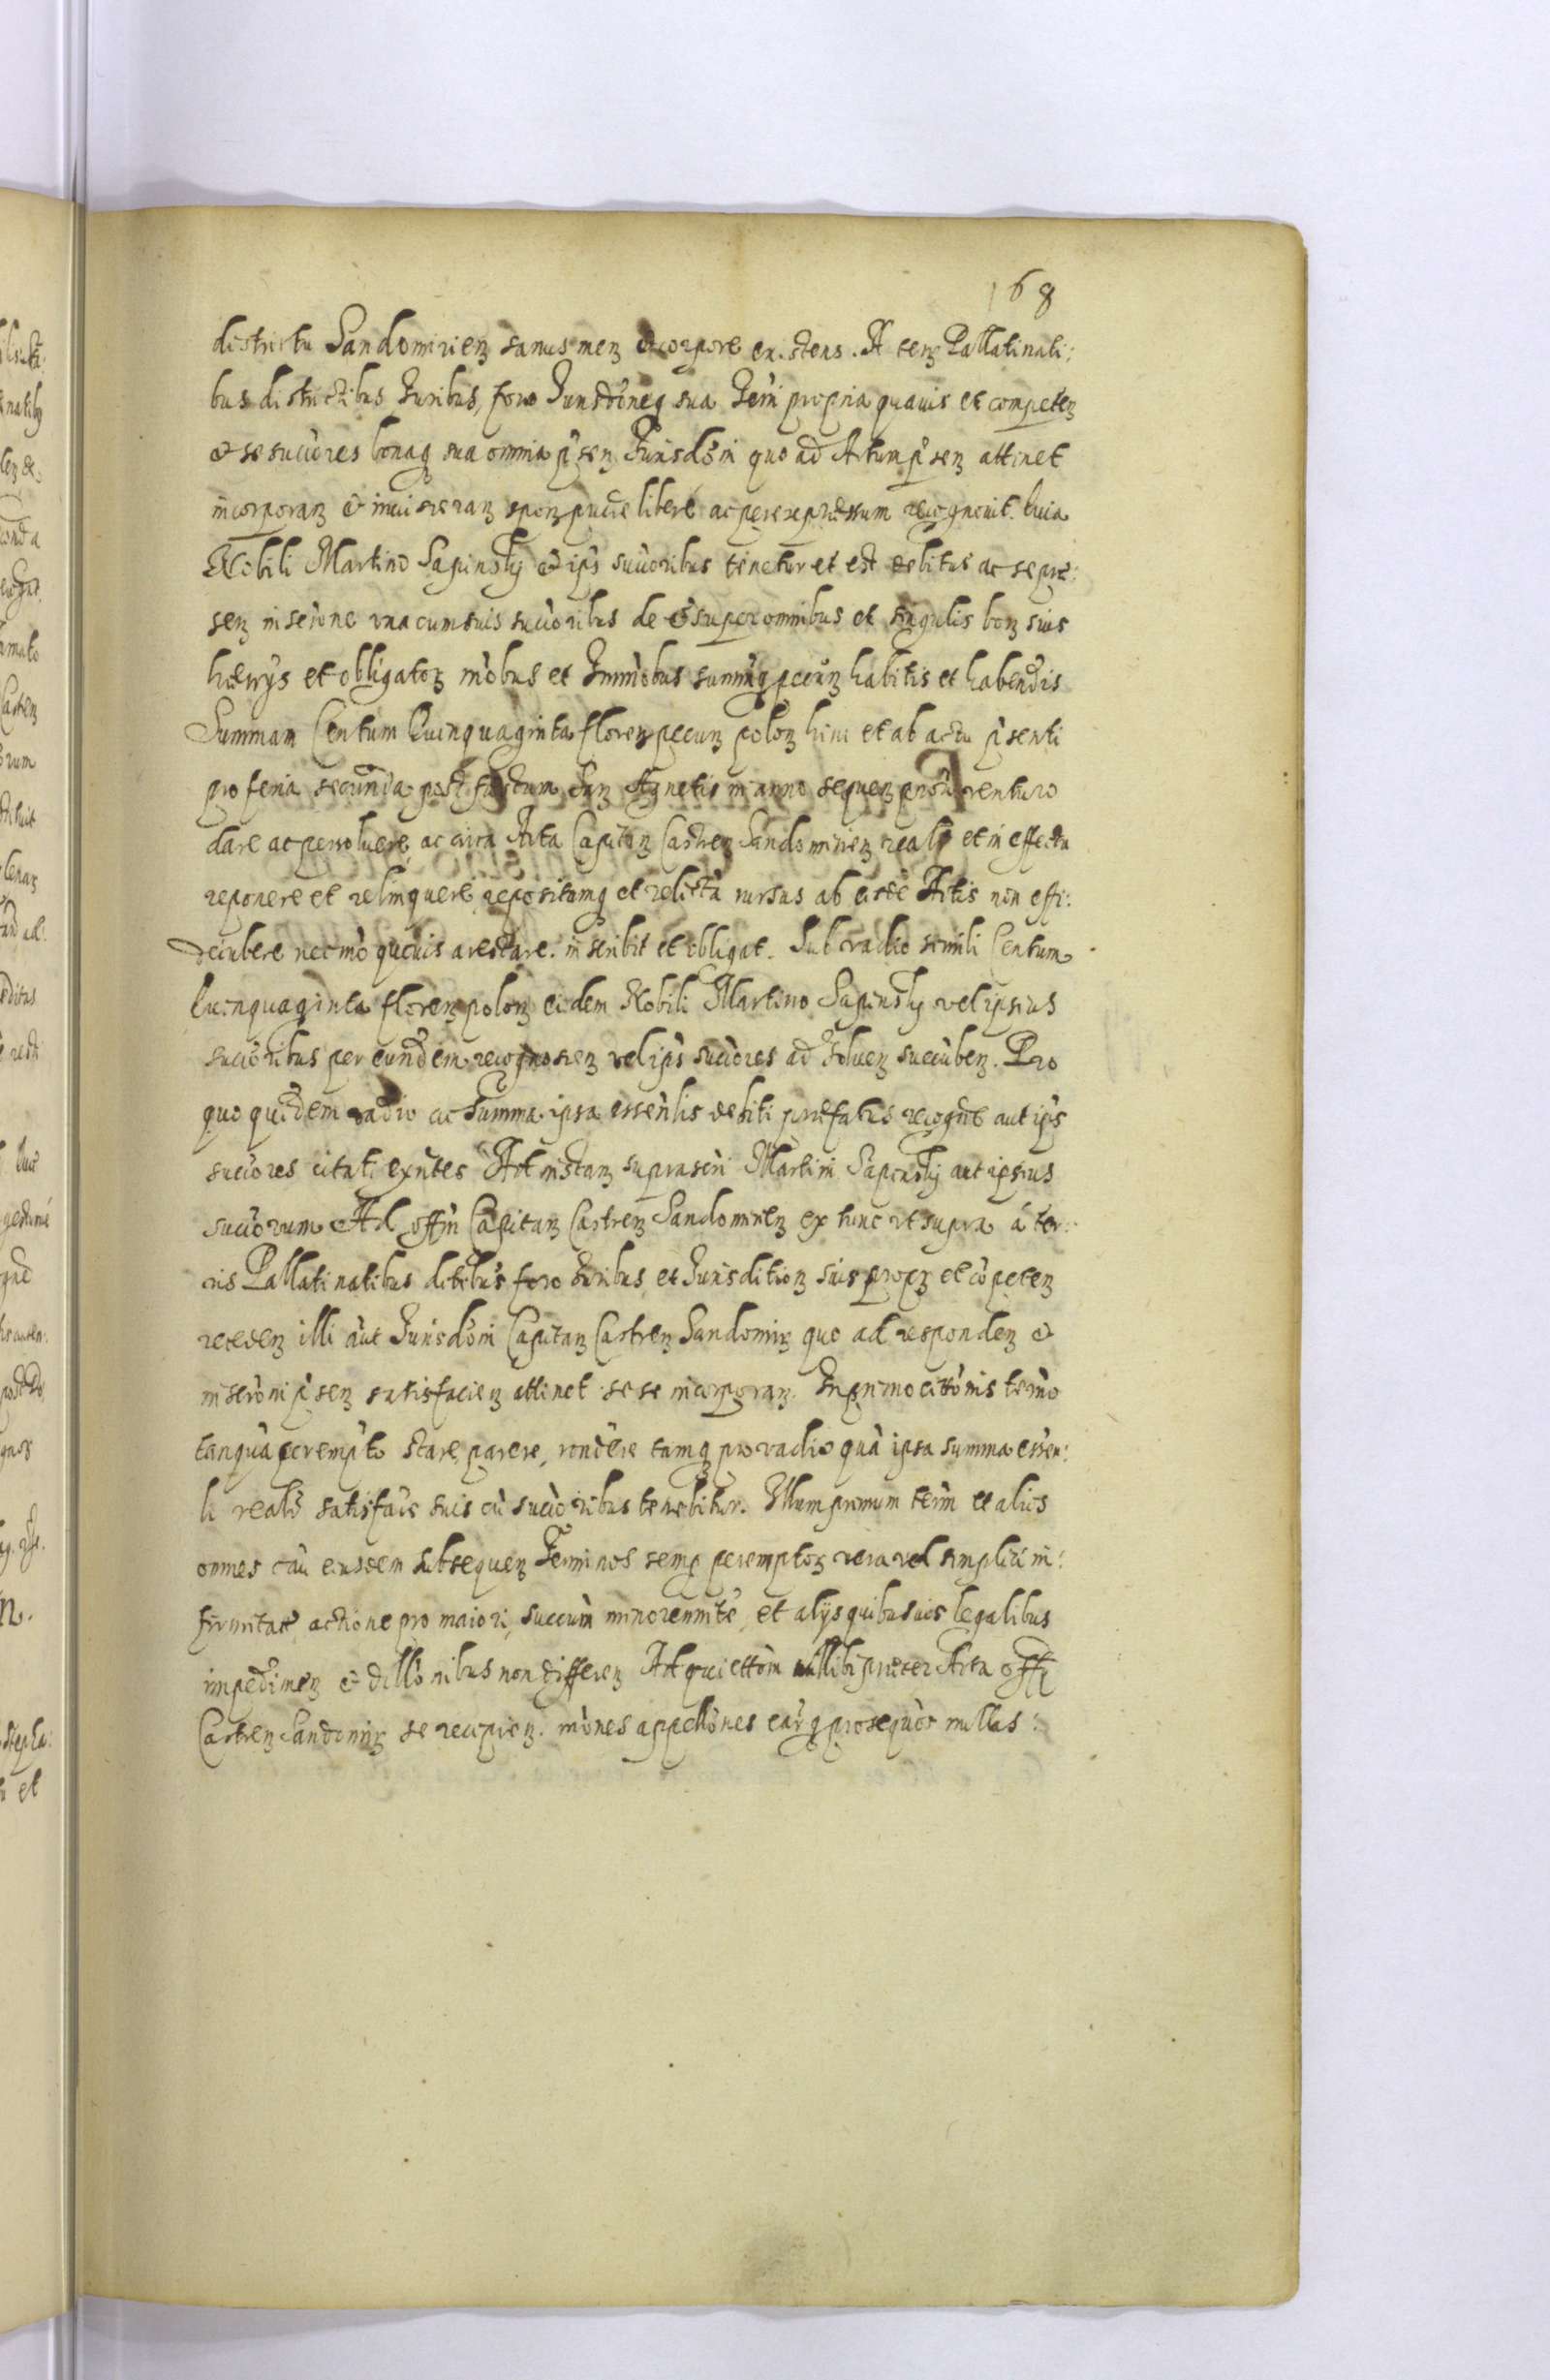 168
districtu Sandomirien sanus men et corpore existens. A terris Pallatinati:
bus districtibus Juribus, foro Jurisdõneq sua Terrì propria quavis et competen
et se succõres bonaq sua omnia p̃sen Jurisdõni quo ad Actum p̃sen attinet
incorporan et invisceran spon publice libere ac per expressum recognovit. Quia
Nobili Martino Sapinsky et ips succoribus tenetur et est debitus ac se præ:
sen inscrõne una cum suis succoribus de et super omnibus et singulis bon suis
hærijs et obligaton mòbus et Immòbus summisq pecun habitis et habendis
Summam Centum Quinquaginta floren pecun polon hinc et ab actu p̃senti
pro feria secunda post festum San Agnetis in anno sequen prox venturo
dare ac persolvere, ac circa Acta Capitan Castren Sandomirien realr et in effectu
reponere et relinquere, repositamq et relictà rursus ab eisde Actis non effi:
decubere nec mò quovis arestare. inscribit et obligat. Sub vadio simili Centum
Quinquaginta floren polon eidem Nobili Martino Sapinsky vel ipsius
succoribus per eundem recognoscen vel ips succores ad solven succuben. Pro
quo quidem vadio ac summa ipsa essenlis debiti præfatus recogñs aut ips
succores citati exñtes Ad instan suprascri Martini Sapinsky aut ipsius
succorum Ad offm Capitan Castren Sandomirien ex tunc ut supra à ter:
ris Pallatinatibus dictibus foro Juribus et Jurisdition suis propr et còpeten
receden illi aut Jurisdõni Capitan Castren Sandomir quo ad responden et
inscrõni p̃sen satisfacien attinet sese incorporan. In primo cittònis termo
tanquà perempto stare, parere, rondere tamq pro vadio quà ipsa summa essen:
li realr satisfacè suis cù succoribus tenebitur. Illum primum term et alios
omnes càu eiusdem subsequen Terminos semp perempton vera vel simplici in:
firmitate, actione pro maiori, succum minorennite, et alijs quibusvis legalibus
impedimen et dillònibus non differen Ad quiettòm nullibi præter Acta offi
Castren Sandomir se recipien. mònes appellònes earq prosequòs nullas: